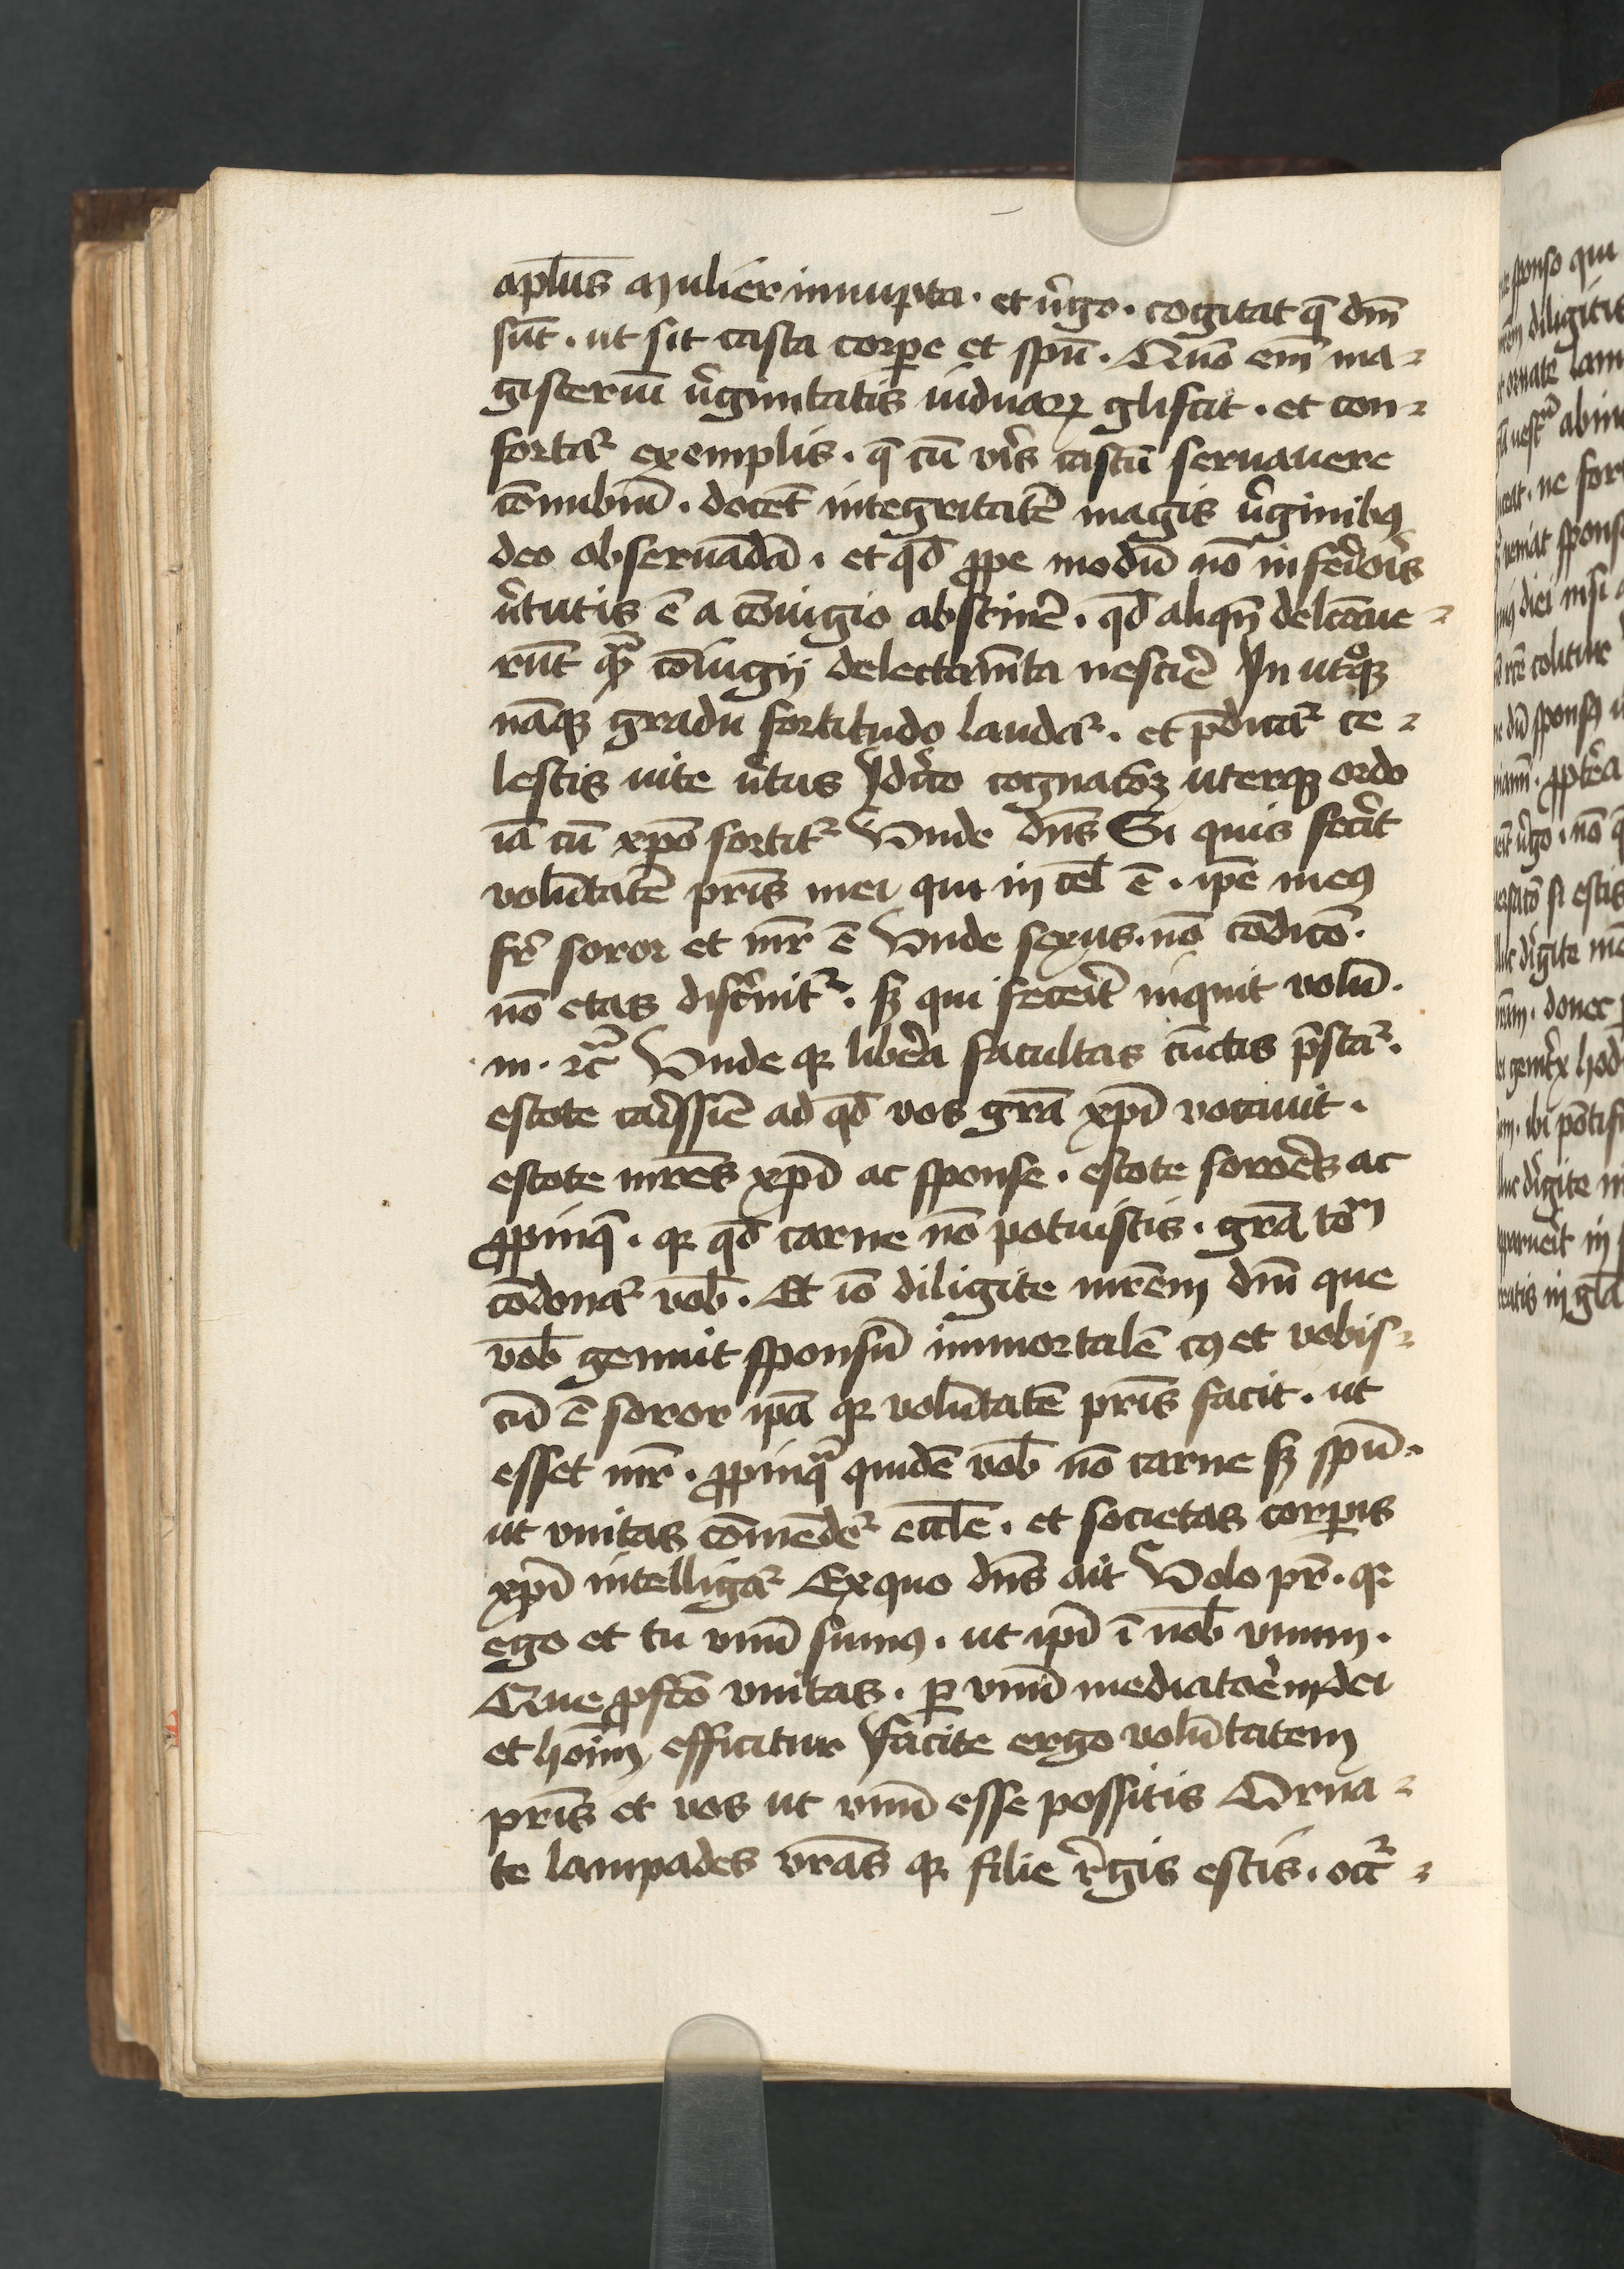 apl̄us Mulier innupta · et v̓go · cogitat q̄ dn̄i
sūt · ut sit casta corpe et spū · Quō em̄ ma-
gisteriū v̓ginitatis uiduaꝝ gliscit · et con-
fortat᷑ exemplis · q̄ cū vir̄s castū seruauere
cōnubiū · docēt integritatē magis v̓ginibꝯ
deo obseruādā · et qd̄ ꝓpe modū nō inferior̄is
v̓tutis ē a cōiugio abstinē · qd̄ aliqn̄ delectaue-
rūt qᷓ cōiugij delectam̄ta nescire In utͦqꝫ
nāqꝫ gradu fortitudo laudat᷑ · et p̄dicat᷑ ce-
lestis uite v̓tus Idcͥco cognatōꝫ uterqꝫ ordo
iā cū xp̄o sortit᷑ Vnde dn̄s Si quis fec̓it
volūtatē pr̄is mei qui in cel̄ ē · ip̄e meꝯ
fr̄ soror et mr̄ ē Vnde sexus · nō cōdicō ·
nō etas disc̓nit᷑ · sꝫ qui fecerit inquit volū ·
m · ⁊c̄ Vnde qꝛ lib̓a facultas cūctis p̄stat᷑ ·
estote carissīe ad qd̄ vos grā xp̄i vocauit ·
estote mr̄es xp̄i ac sponse · estote soror̄es ac
ꝓpinq̄ · qꝛ qd̄ carne nō potuistis · grā tōm
cōdonat᷑ vob̄ · Et iō diligite mr̄em dn̄i que
vob̄ genuit sponsū immortalē cꝯ et vobis-
cū ē soror ip̄a qꝛ volūtatē pr̄is facit · ut
esset mr̄ · ꝓpinqᷓ quidē vob̄ nō carne sꝫ spū ·
ut vnitas cōmēdet᷑ eccl̄e · et societas corpis
xp̄i intelligat᷑ Ex quo dn̄s ait Volo pr̄ · qꝛ
ego et tu vnū sumꝯ · ut ip̄i ī nob̄ vnum ·
Que ꝓfcō vnitas · ꝑ vnū mediator̄em dei
et hoīm efficitur Facite ergo volūtatem
pr̄is et vos ut vnū esse possitis Orna-
te lampades vr̄as qꝛ filie r̓gis estis · occ᷑-